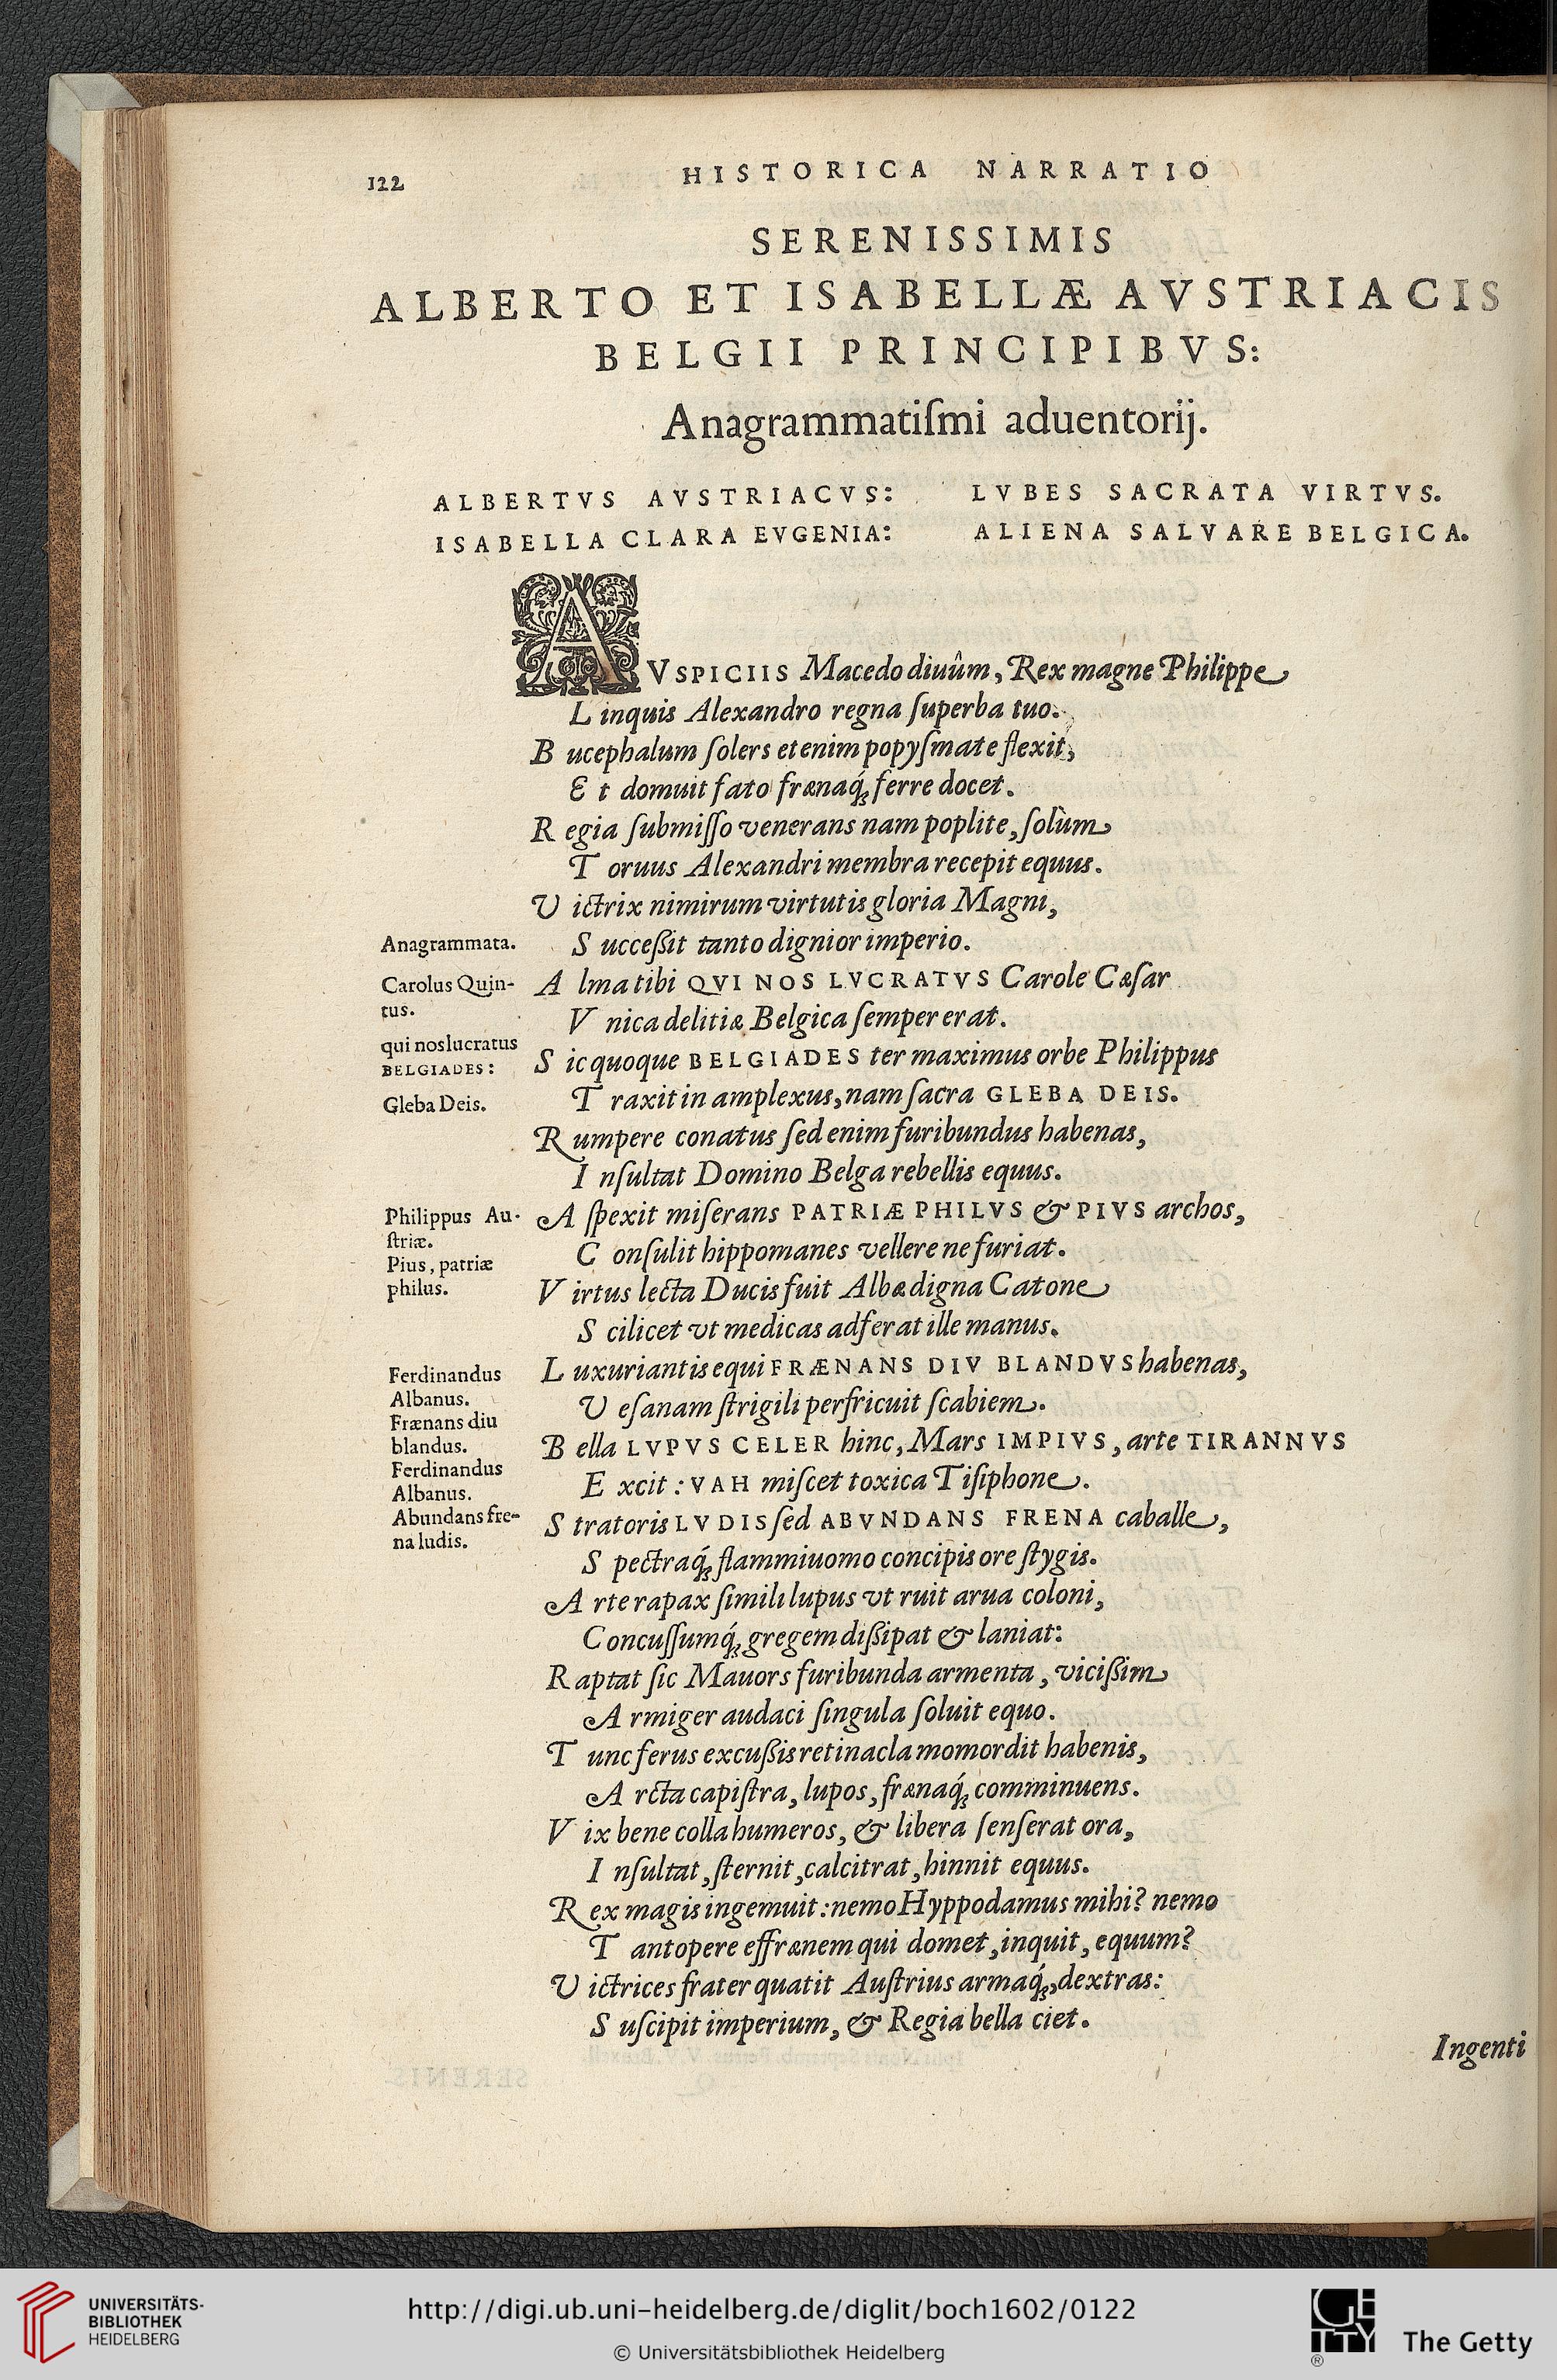 122
HISTORICA NARRATIO
SERENISSIMIS
ALBERTO ET ISABELLÆ AVSTRIACIS
BELGII PRINCIPIBVS:
Anagrammatiſmi aduentorij.
ALBERTVS AVSTRIACVS: LVBES SACRATA VIRTVS.
ISABELLA CLARA EVGENIA: ALIENA SALVARE BELGICA.
AVSPICIIS Macedo diuûm, Rex magne Philippe
Linquis Alexandro regna ſuperba tuo.
Bucephalum ſolers etenim popyſmate flexit,
Et domuit fato frænaq́; ferre docet.
Regia ſubmiſſo venerans nam poplite, ſolùm
Toruus Alexandri membra recepit equus.
Victrix nimirum virtutis gloria Magni,
Anagrammata.
Succeßit tanto dignior imperio.
Carolus Quin-
tus.
Alma tibi QVI NOS LVCRATVS Carole Cæſar
Vnica delitiæ Belgica ſemper erat.
qui nos lucratus
BELGIADES:
Sic quoque BELGIADES ter maximus orbe Philippus
Gleba Deis.
Traxit in amplexus, nam ſacra GLEBA DEIS.
Rumpere conatus ſed enim furibundus habenas,
Inſultat Domino Belga rebellis equus.
Philippus Au-
ſtriæ.
Pius, patriæ
philus.
Aſpexit miſerans PATRIÆ PHILVS & PIVS archos,
Conſulit hippomanes vellere ne furiat.
Virtus lecta Ducis fuit Albæ digna Catone
Scilicet vt medicas adferat ille manus.
Ferdinandus
Albanus.
Frænans diu
blandus.
Ferdinandus
Albanus.
Abundans fre-
na ludis.
Luxuriantis equi FRÆNANS DIV BLANDVS habenas,
Veſanam ſtrigili perfricuit ſcabiem.
Bella LVPVS CELER hinc, Mars IMPIVS, arte TIRANNVS
Excit: VAH miſcet toxica Tiſiphone.
Stratoris LVDIS ſed ABVNDANS FRENA caballe,
Spectraq́; flammiuomo concipis ore ſtygis.
Arte rapax ſimili lupus vt ruit arua coloni,
Concuſſumq́; gregem dißipat & laniat:
Raptat ſic Mauors furibunda armenta, vicißim
Armiger audaci ſingula ſoluit equo.
Tunc ferus excußis retinacla momordit habenis,
Arcta capiſtra, lupos, frænaq́; comminuens.
Vix bene colla humeros, & libera ſenſerat ora,
Inſultat, ſternit, calcitrat, hinnit equus.
Rex magis ingemuit: nemo Hyppodamus mihi? nemo
Tantopere effrænem qui domet, inquit, equum?
Victrices frater quatit Auſtrius armaq́;, dextras:
Suſcipit imperium, & Regia bella ciet.
Ingenti
UNIVERSITÄTS-
BIBLIOTHEK
HEIDELBERG
http://digi.ub.uni-heidelberg.de/diglit/boch1602/0122
© Universitätsbibliothek Heidelberg
GETTY
The Getty